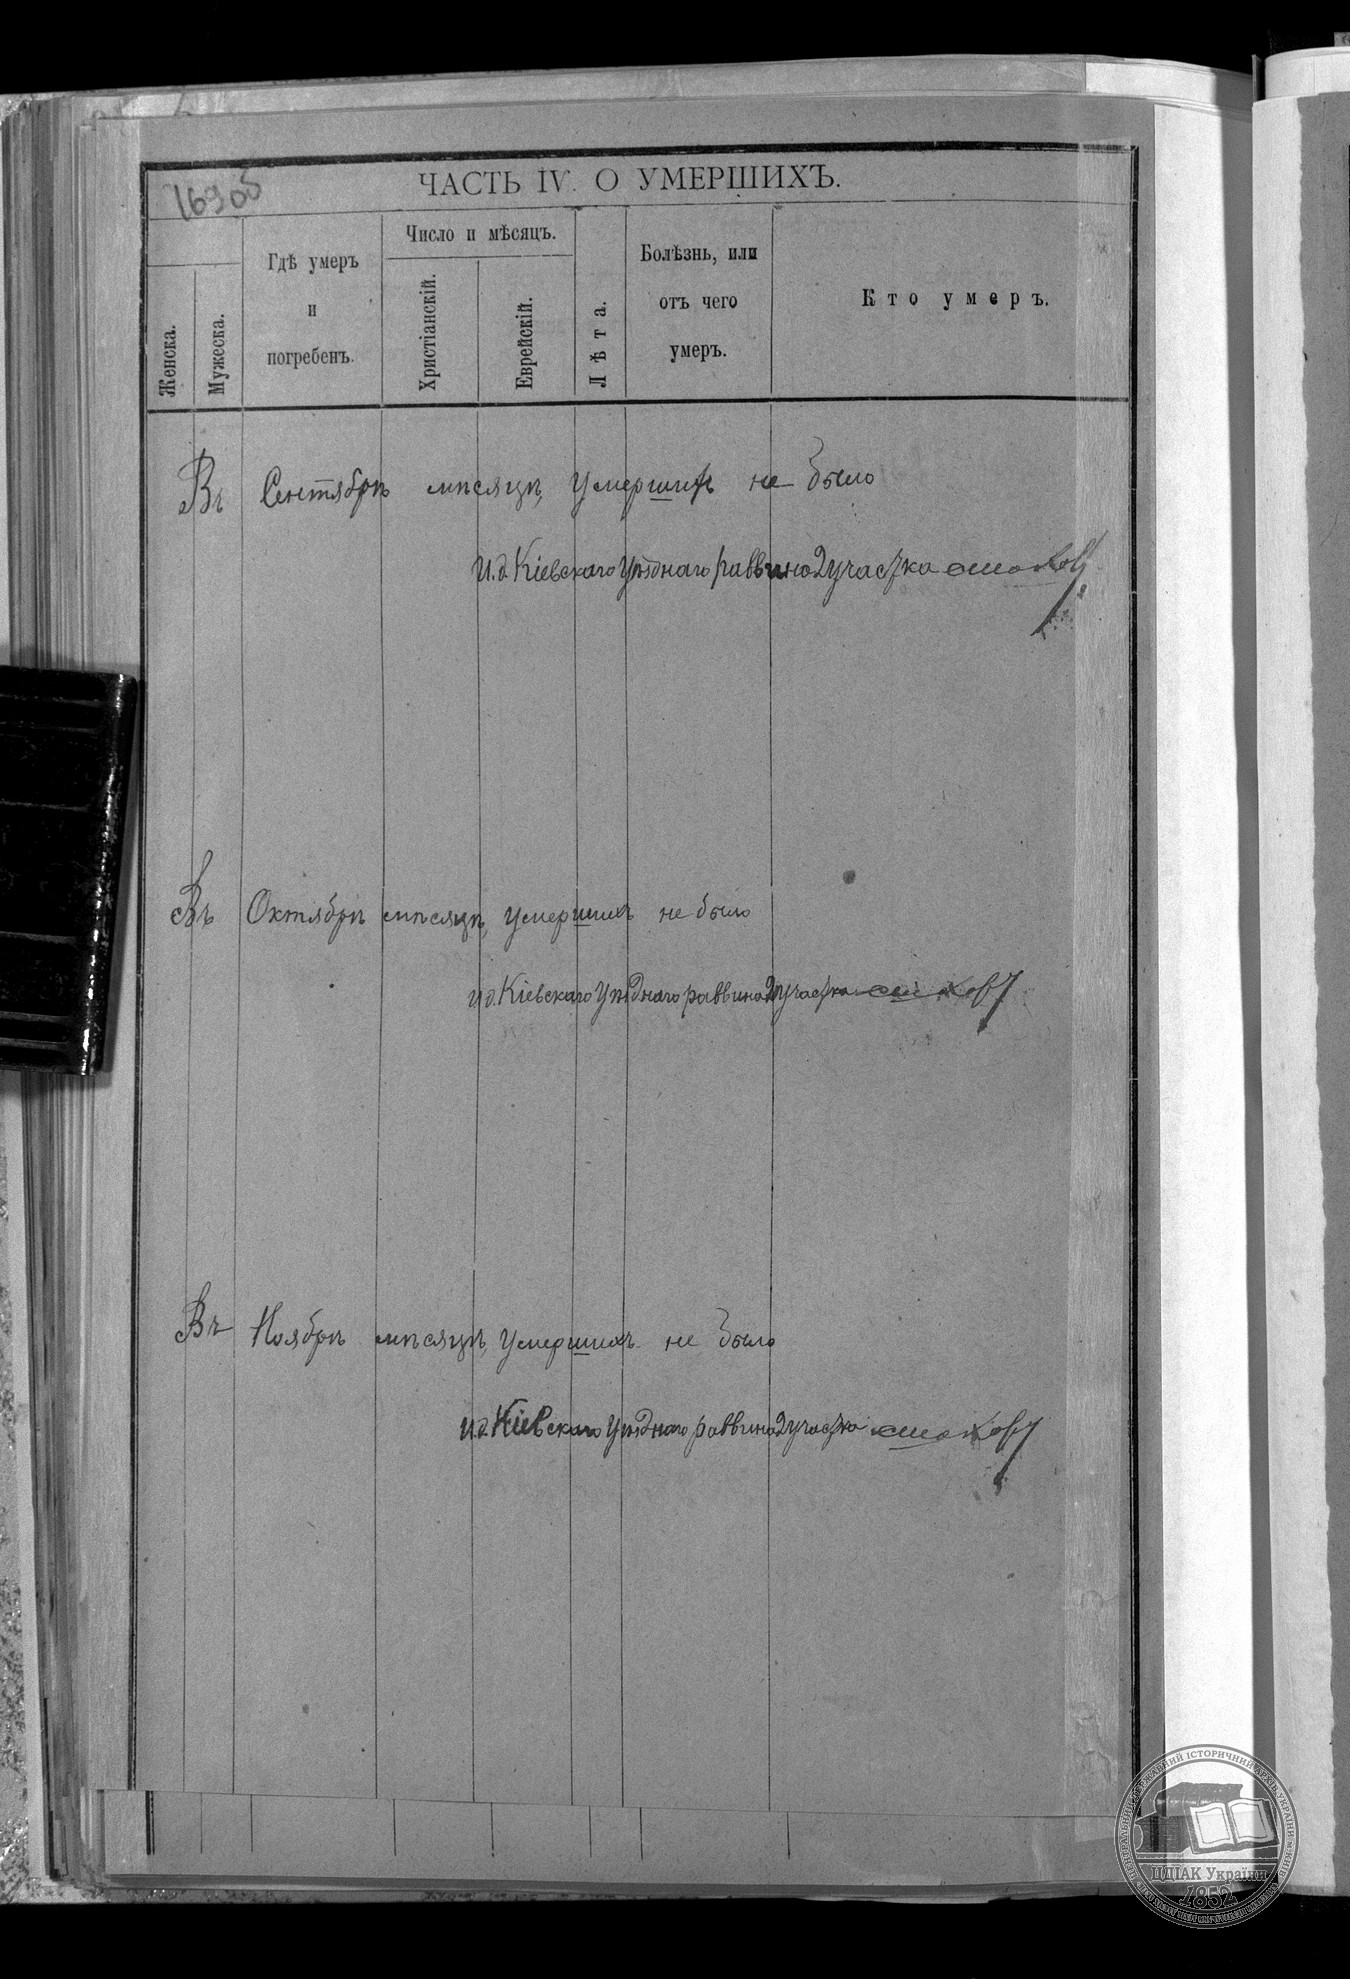 169об
ЧАСТЬ IV. О УМЕРШИХЪ.
Женска.
Мужеска.
Гдѣ умеръ
и
погребенъ.
Число и мѣсяцъ.
Христіанскій.
Еврейскій.
Лѣта.
Болѣзнь, или
отъ чего
умеръ.
Кто умеръ.
Въ Сентябрѣ мѣсяцѣ, умершихъ не было
И.д. Кіевскаго Уѣзднаго раввина 2 участка
Въ Октябрѣ мѣсяцѣ, умершихъ не было
И.д. Кіевскаго Уѣзднаго раввина 2 участка
Въ Ноябрѣ мѣсяцѣ, умершихъ не было
И.д. Кіевскаго Уѣзднаго раввина 2 участка
ЦДІАК України
1852